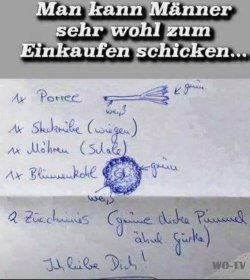 Man kann Männer
sehr wohl zum
Einkaufen schicken...
1x Porree
grün
weiß
1x Steckrübe (wiegen)
1x Möhren (Schale)
1x Blumenkohl
grün
weiß
2 Zucchinis (grüne dicke Pimmel
ähnl. Gurke)
Ich liebe Dich!
WO-TV